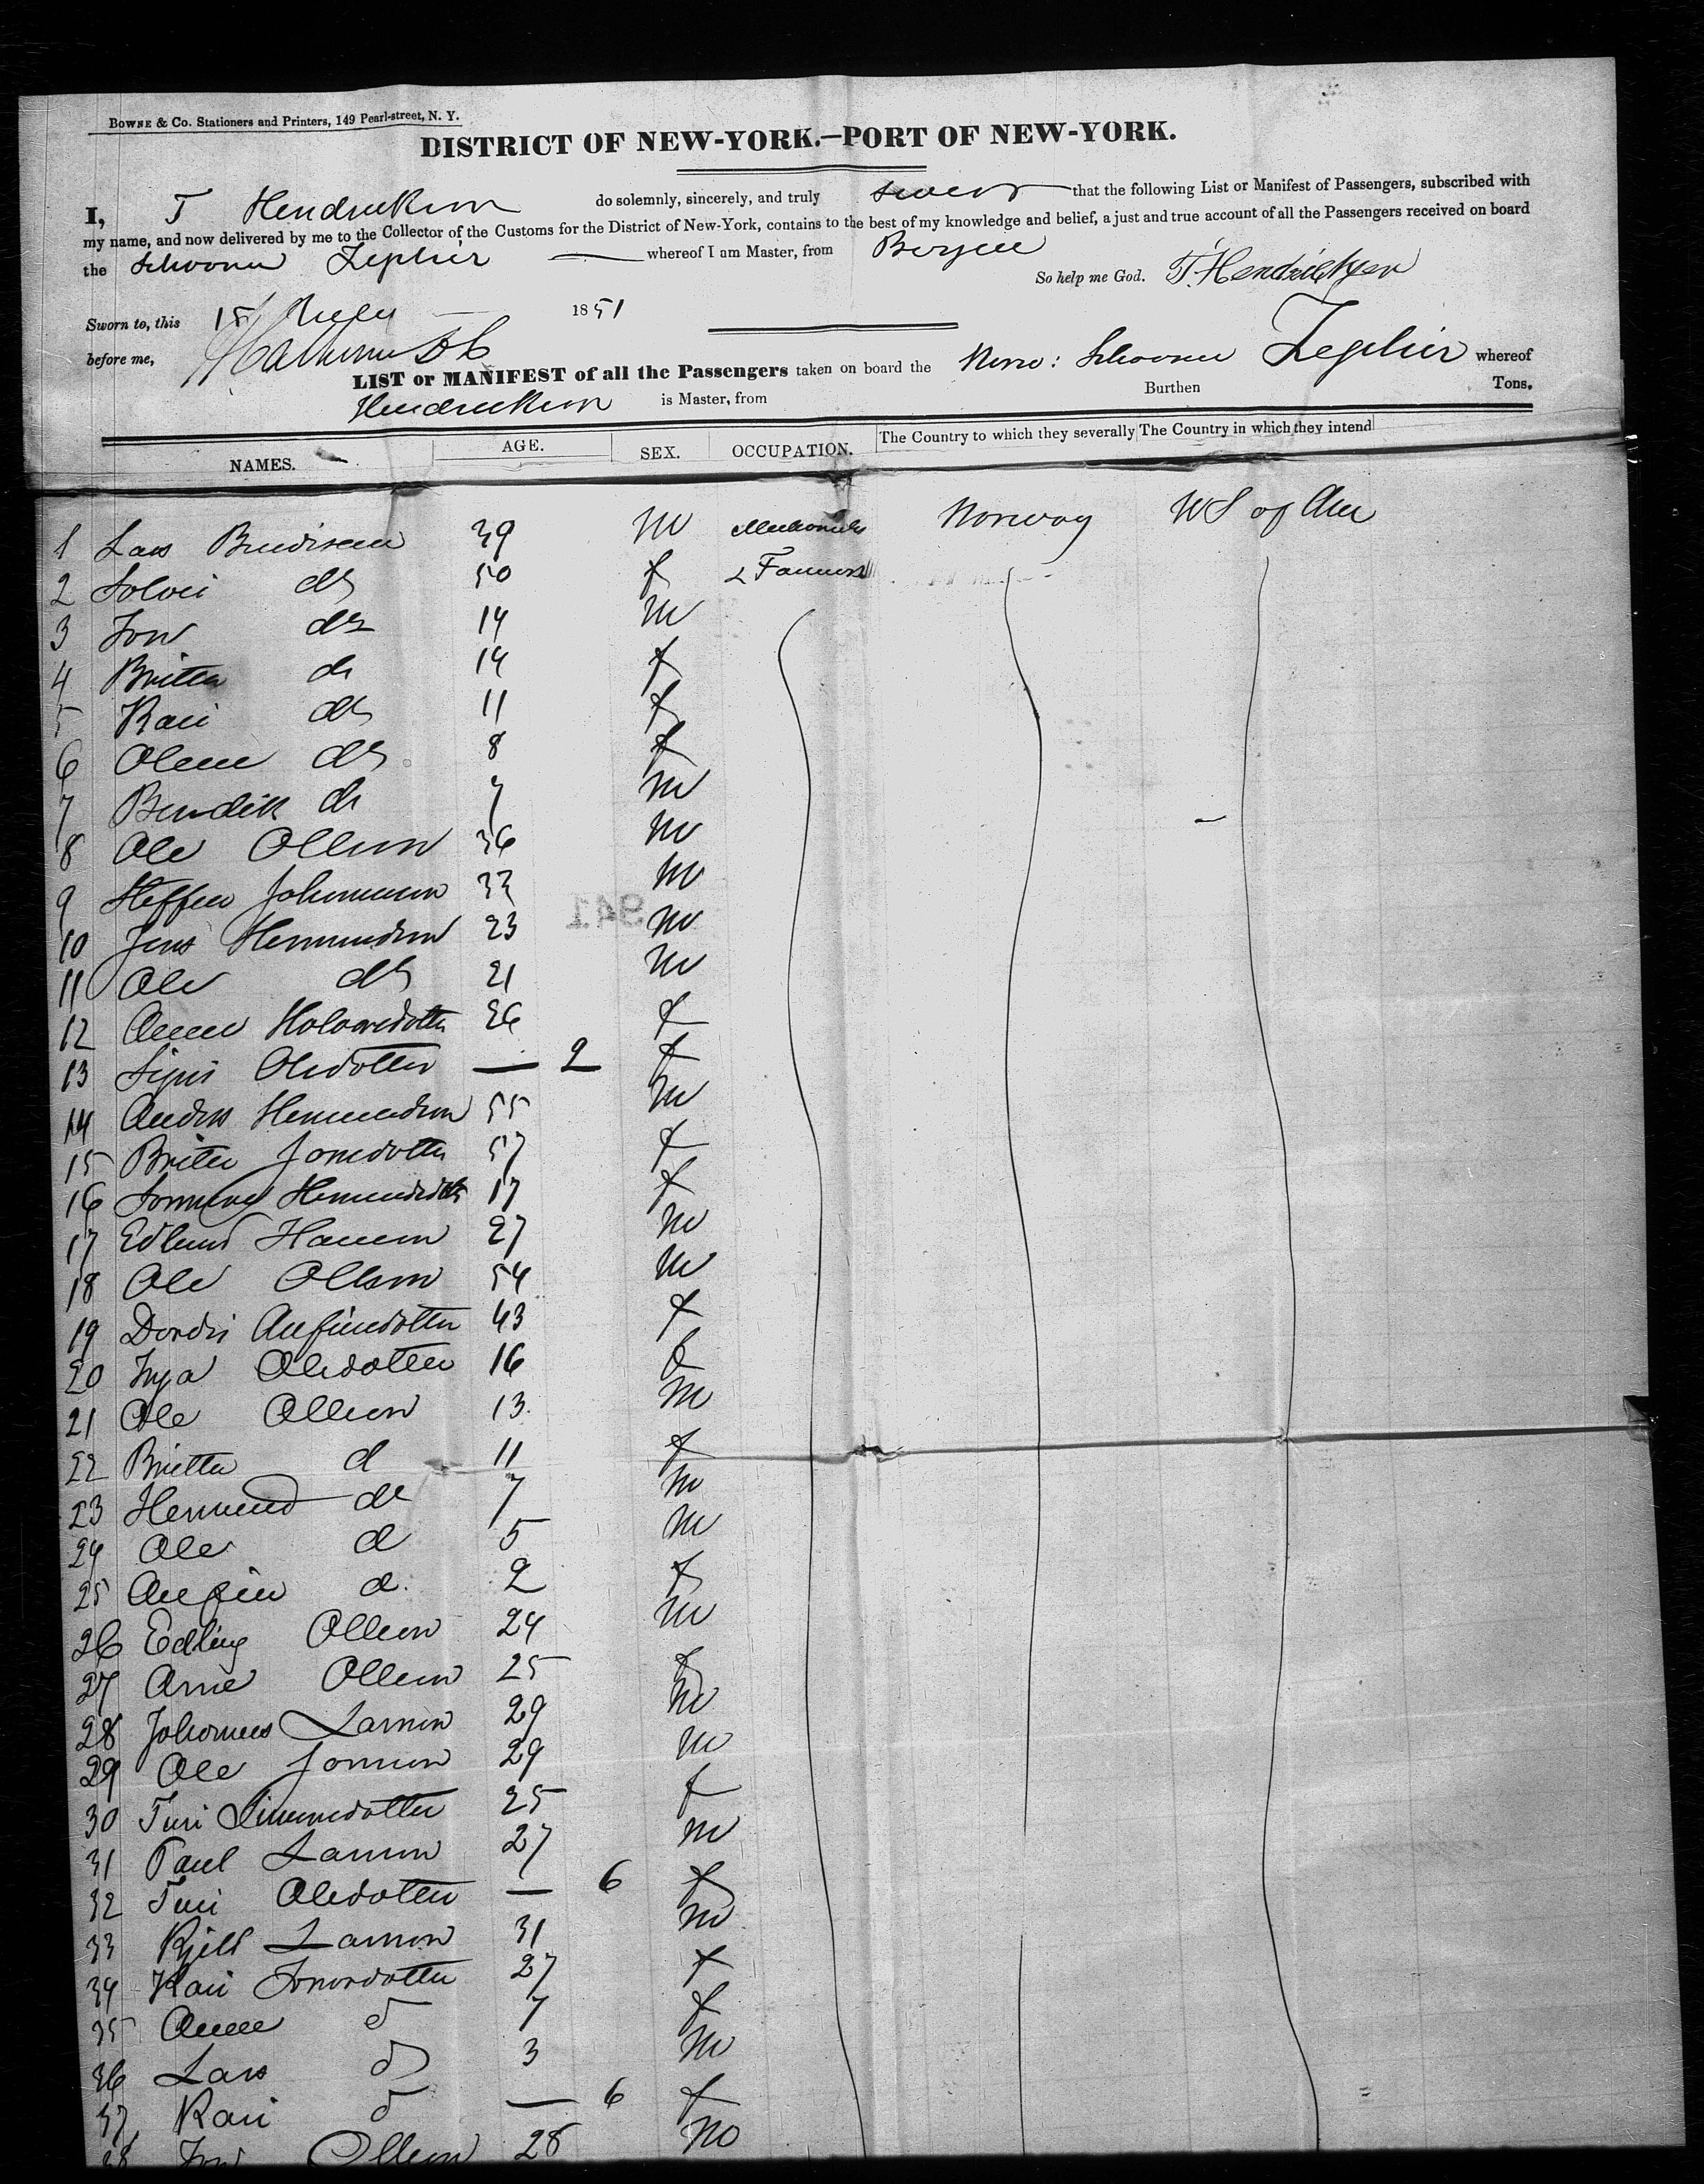 BOWNE & CO. Stationers and Printers, 149 Pearl-street, N. Y.
DISTRICT OF NEW-YORK.—PORT OF NEW-YORK.
I, T Hendrickson do solemnly, sincerely, and truly swear that the following List or Manifest of Passengers, subscribed with
my name, and now delivered by me to the Collector of the Customs for the District of New-York, contains to the best of my knowledge and belief, a just and true account of all the Passengers received on board
the Schooner Zephir whereof I am Master, from Bergen
So help me God. T. Hendricksen
Sworn to, this 15 1851
before me,
LIST or MANIFEST of all the Passengers taken on board the Norw: Schooner Zephir whereof
Hendrickson is Master, from Burthen Tons.
NAMES. AGE. SEX. OCCUPATION. The Country to which they severally The Country in which they intend
1 Lars 39 m Mechanics Norway US of Am
2 Solvei do 50 f & Farmers
3 Jon do 14 m
4 Britta do 14 f
5 Kari do 11 f
6 Olene do 8 f
7 Bendik do 7 m
8 Ole Olleson 36 m
9 Steffen Johannson 33 m
941
10 Jens Hermundson 23 m
11 Ole do 21 m
12 Anne 26 f
13 Oledotter — 2 f
14 Anders Hermundson 55 m
15 Brite Jonsdotter 57 f
16 17 f
17 Edlund Hanson 27 m
18 Ole Olleson 54 m
19 Dordi Anfindotter 43 f
20 Inga Oledotter 16 f
21 Ole Olleson 13 m
22 Britta d 11 f
23 Hermund do 7 m
24 Ole d 5 m
25 Anfin d. 2 f
26 Edling Olleson 24 m
27 Arne Olleson 25 f
28 Johannes Larson 29 m
29 Ole Jonson 29 m
30 Turi 25 f
31 Paul Larson 27 m
32 Turi Oledotter — 6 f
33 Kjell Larson 31 m
34 Kari 27 f
35 Anne d 7 f
36 Lars do 3 m
37 Kari d — 6 f
38 Jon Olleson 28 m